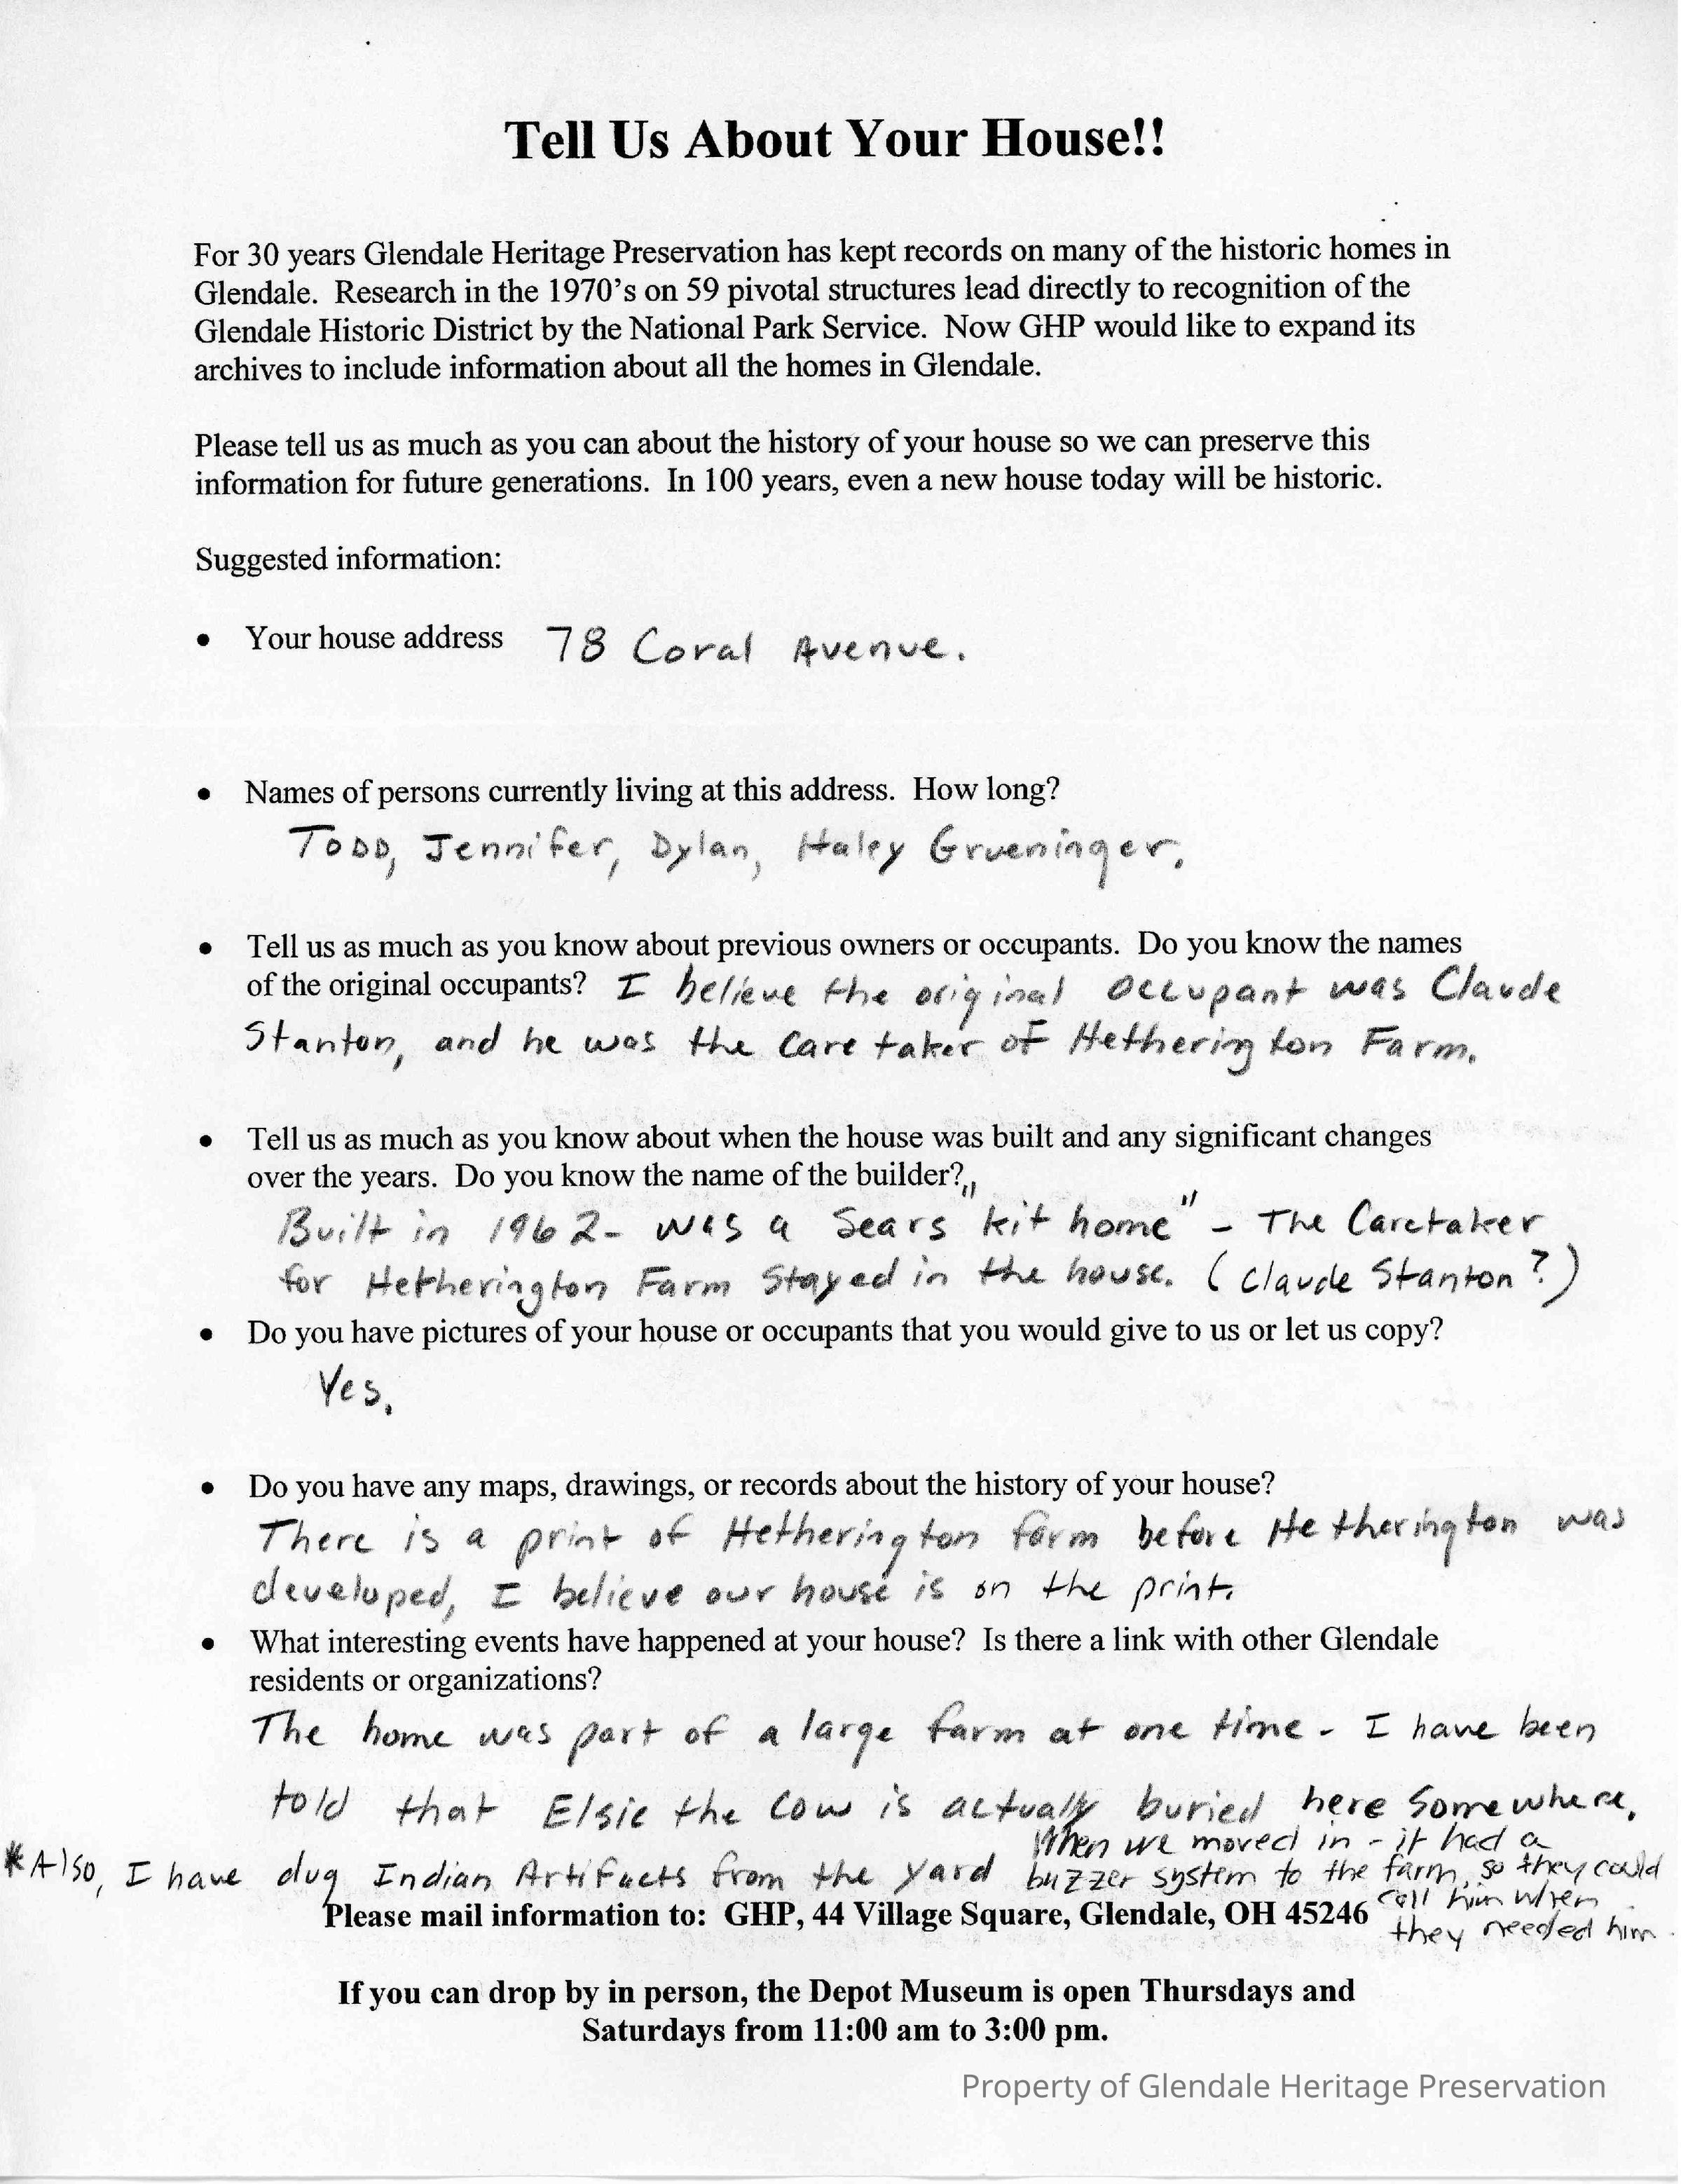 Tell Us About Your House!!
For 30 years Glendale Heritage Preservation has kept records on many of the historic homes in
Glendale.  Research in the 1970's on 59 pivotal structures lead directly to recognition of the
Glendale Historic District by the National Park Service.  Now GHP would like to expand its
archives to include information about all the homes in Glendale.
Please tell us as much as you can about the history of your house so we can preserve this
information for future generations.  In 100 years, even a new house today will be historic.
Suggested information:
• Your house address 78 Coral Avenue.
• Names of persons currently living at this address.  How long?
Todd, Jennifer, Dylan, Haley Grueninger.
• Tell us as much as you know about previous owners or occupants.  Do you know the names
of the original occupants? I believe the original occupant was Claude
Stanton, and he was the care taker of Hetherington Farm.
• Tell us as much as you know about when the house was built and any significant changes
over the years.  Do you know the name of the builder?
Built in 1962- was a Sears "kit home" - The Caretaker
for Hetherington Farm Stayed in the house. (Claude Stanton?)
• Do you have pictures of your house or occupants that you would give to us or let us copy?
Yes.
• Do you have any maps, drawings, or records about the history of your house?
There is a print of Hetherington farm before Hetherington was
developed, I believe our house is on the print.
• What interesting events have happened at your house?  Is there a link with other Glendale
residents or organizations?
The home was part of a large farm at one time - I have been
told that Elsie the Cow is actually buried here Somewhere.
*Also, I have dug Indian Artifacts from the yard
When we moved in - it had a
buzzer system to the farm, so they could
call him when
they needed him.
Please mail information to:  GHP, 44 Village Square, Glendale, OH 45246
If you can drop by in person, the Depot Museum is open Thursdays and
Saturdays from 11:00 am to 3:00 pm.
Property of Glendale Heritage Preservation